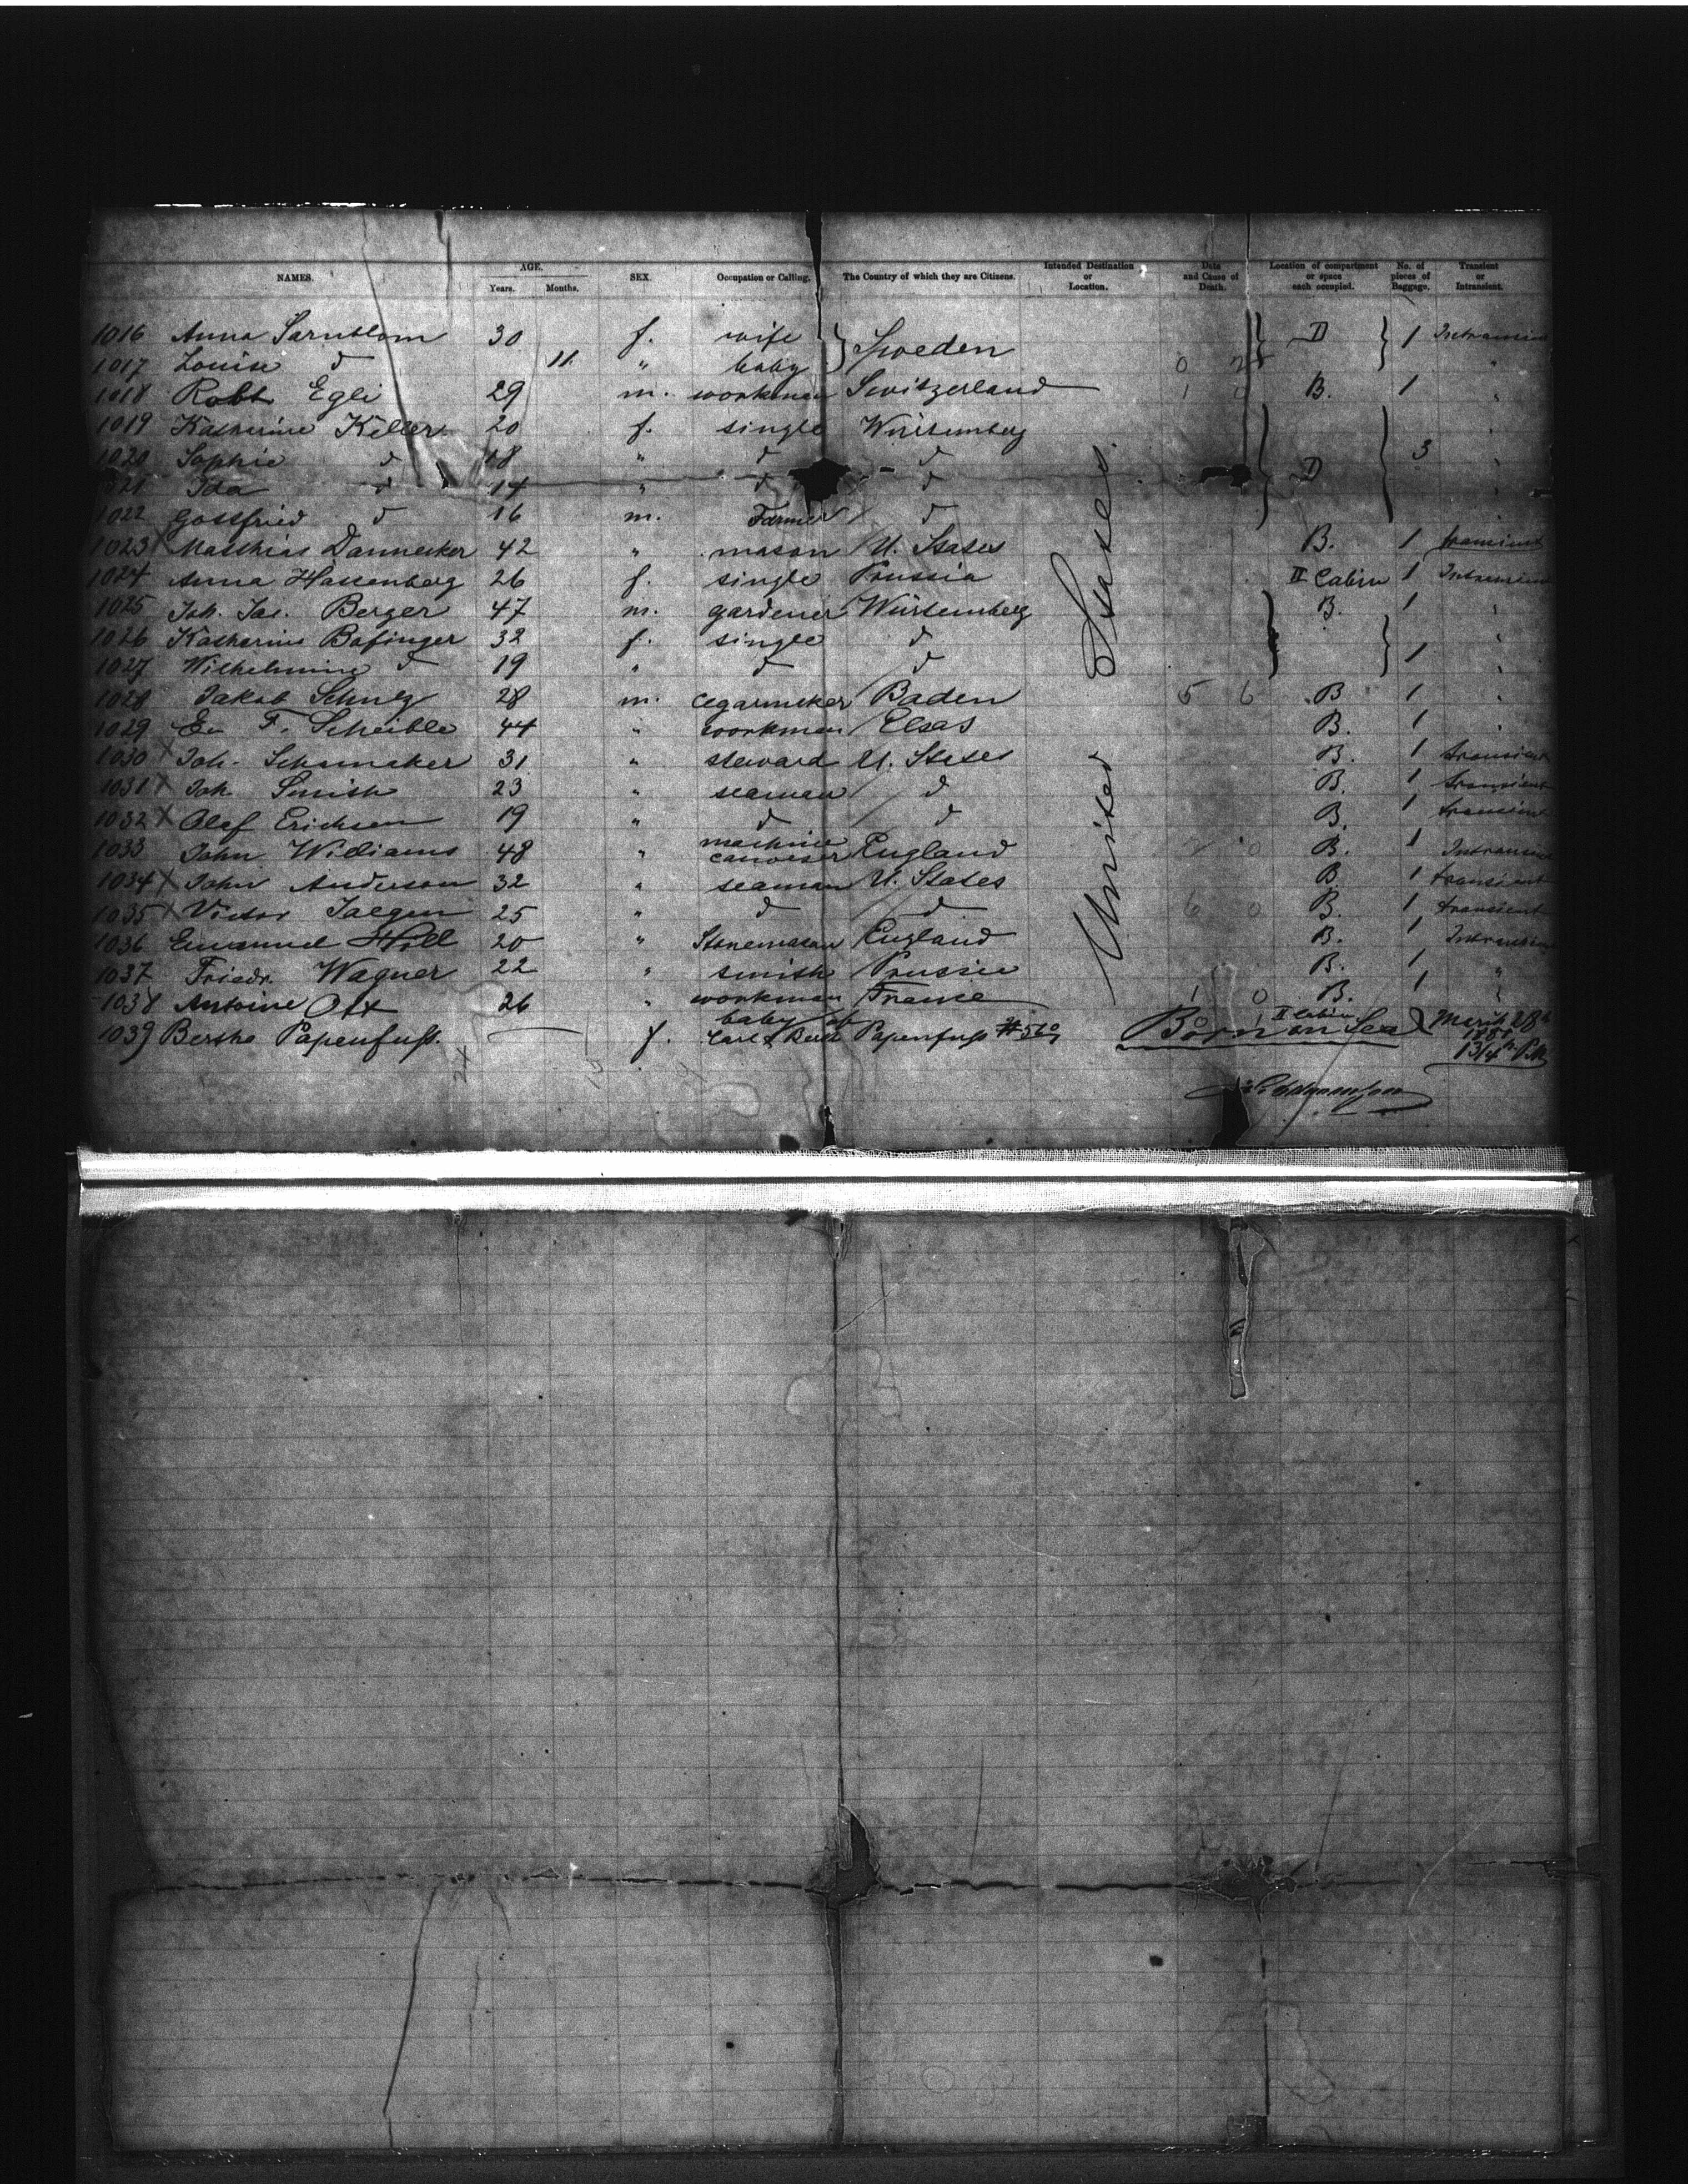 NAMES. AGE. Years. Months. SEX. Occupation or Calling. The Country of which they are Citizens. Intended Destination or Location. Date and Cause of Death. Location of compartment or space each occupied. No. of pieces of Baggage. Transient or Intransient.
1016 Anna Sarnblom 30 f. wife } Sweden } D } 1 Intransient
1017 Louise d 11. " baby 0 28 "
1018 Robt Egli 29 m. workman Switzerland 1 0 B. 1 "
1019 Katherine Keller 20 f. single Würtemberg "
1020 Sophie d 18 " d d } D } 3 "
1021 Ida d 14 " d d "
1022 Gottfried d 16 m. Farmer d
1023 X Matthias Dannecker 42 " mason U. States B. 1 transient
1024 Anna Hassenberg 26 f. single Prussia II Cabin 1 Intransient
1025 Joh. Jac. Berger 47 m. gardener Würtemberg B. 1 "
1026 Katherine Bofinger 32 f. single d "
1027 Wilhelmine d 19 " d d 1 "
1028 Jakob Schug 28 m. cegarmeker Baden 5 6 B 1 "
1029 F. Scheible 44 " workman Elsas B. 1 "
1030 X Joh. Schumaker 31 " steward U. States B. 1 transient
1031 X Joh Smith 23 " seaman d B. 1 transient
1032 X Olof Ericksen 19 " d d B. 1 transient
1033 John Williams 48 " machine canvaser England 0 B. 1 Intransient
1034 X John Anderson 32 " seaman U. States B 1 transient
1035 X Victor Jaegen 25 " d d 6 0 B. 1 transient
1036 Emanuel Hill 20 " Stonemason England B. 1 Intransient
1037 Friedr. Wagner 22 " smith Prussia B. 1 "
1038 Antoine Ott 26 " workman France 1 0 B. 1 "
1039 Bertha Papenfuß. — f. baby of Carl & Bertha Papenfuß Born on Sea II Cabin March 28th 1 3/4 h. P.M
United States.